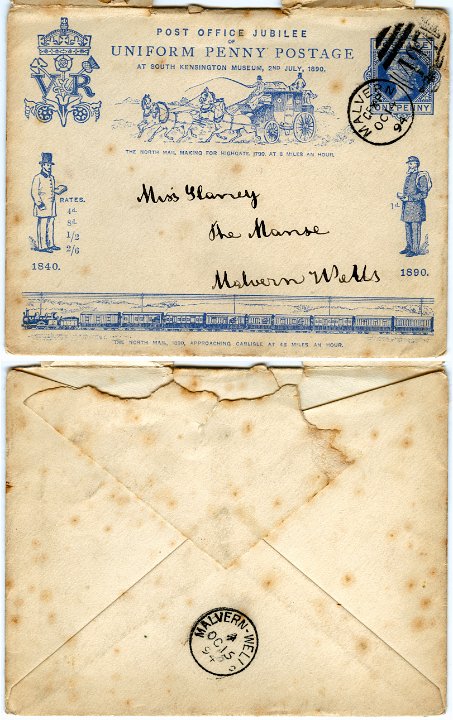 POST OFFICE JUBILEE
OF
UNIFORM PENNY POSTAGE
AT SOUTH KENSINGTON MUSEUM, 2ND JULY, 1890.
V R
ONE PENNY
MALVERN
OC
94
THE NORTH MAIL MAKING FOR HIGHGATE, 1790, AT 8 MILES AN HOUR.
RATES.
4d.
8d.
1/2
2/6
1840.
1d.
1890.
Miss Slaney
The Manse
Malvern Wells
THE NORTH MAIL, 1890, APPROACHING CARLISLE AT 48 MILES AN HOUR.
MALVERN-WELLS
OC 15
94